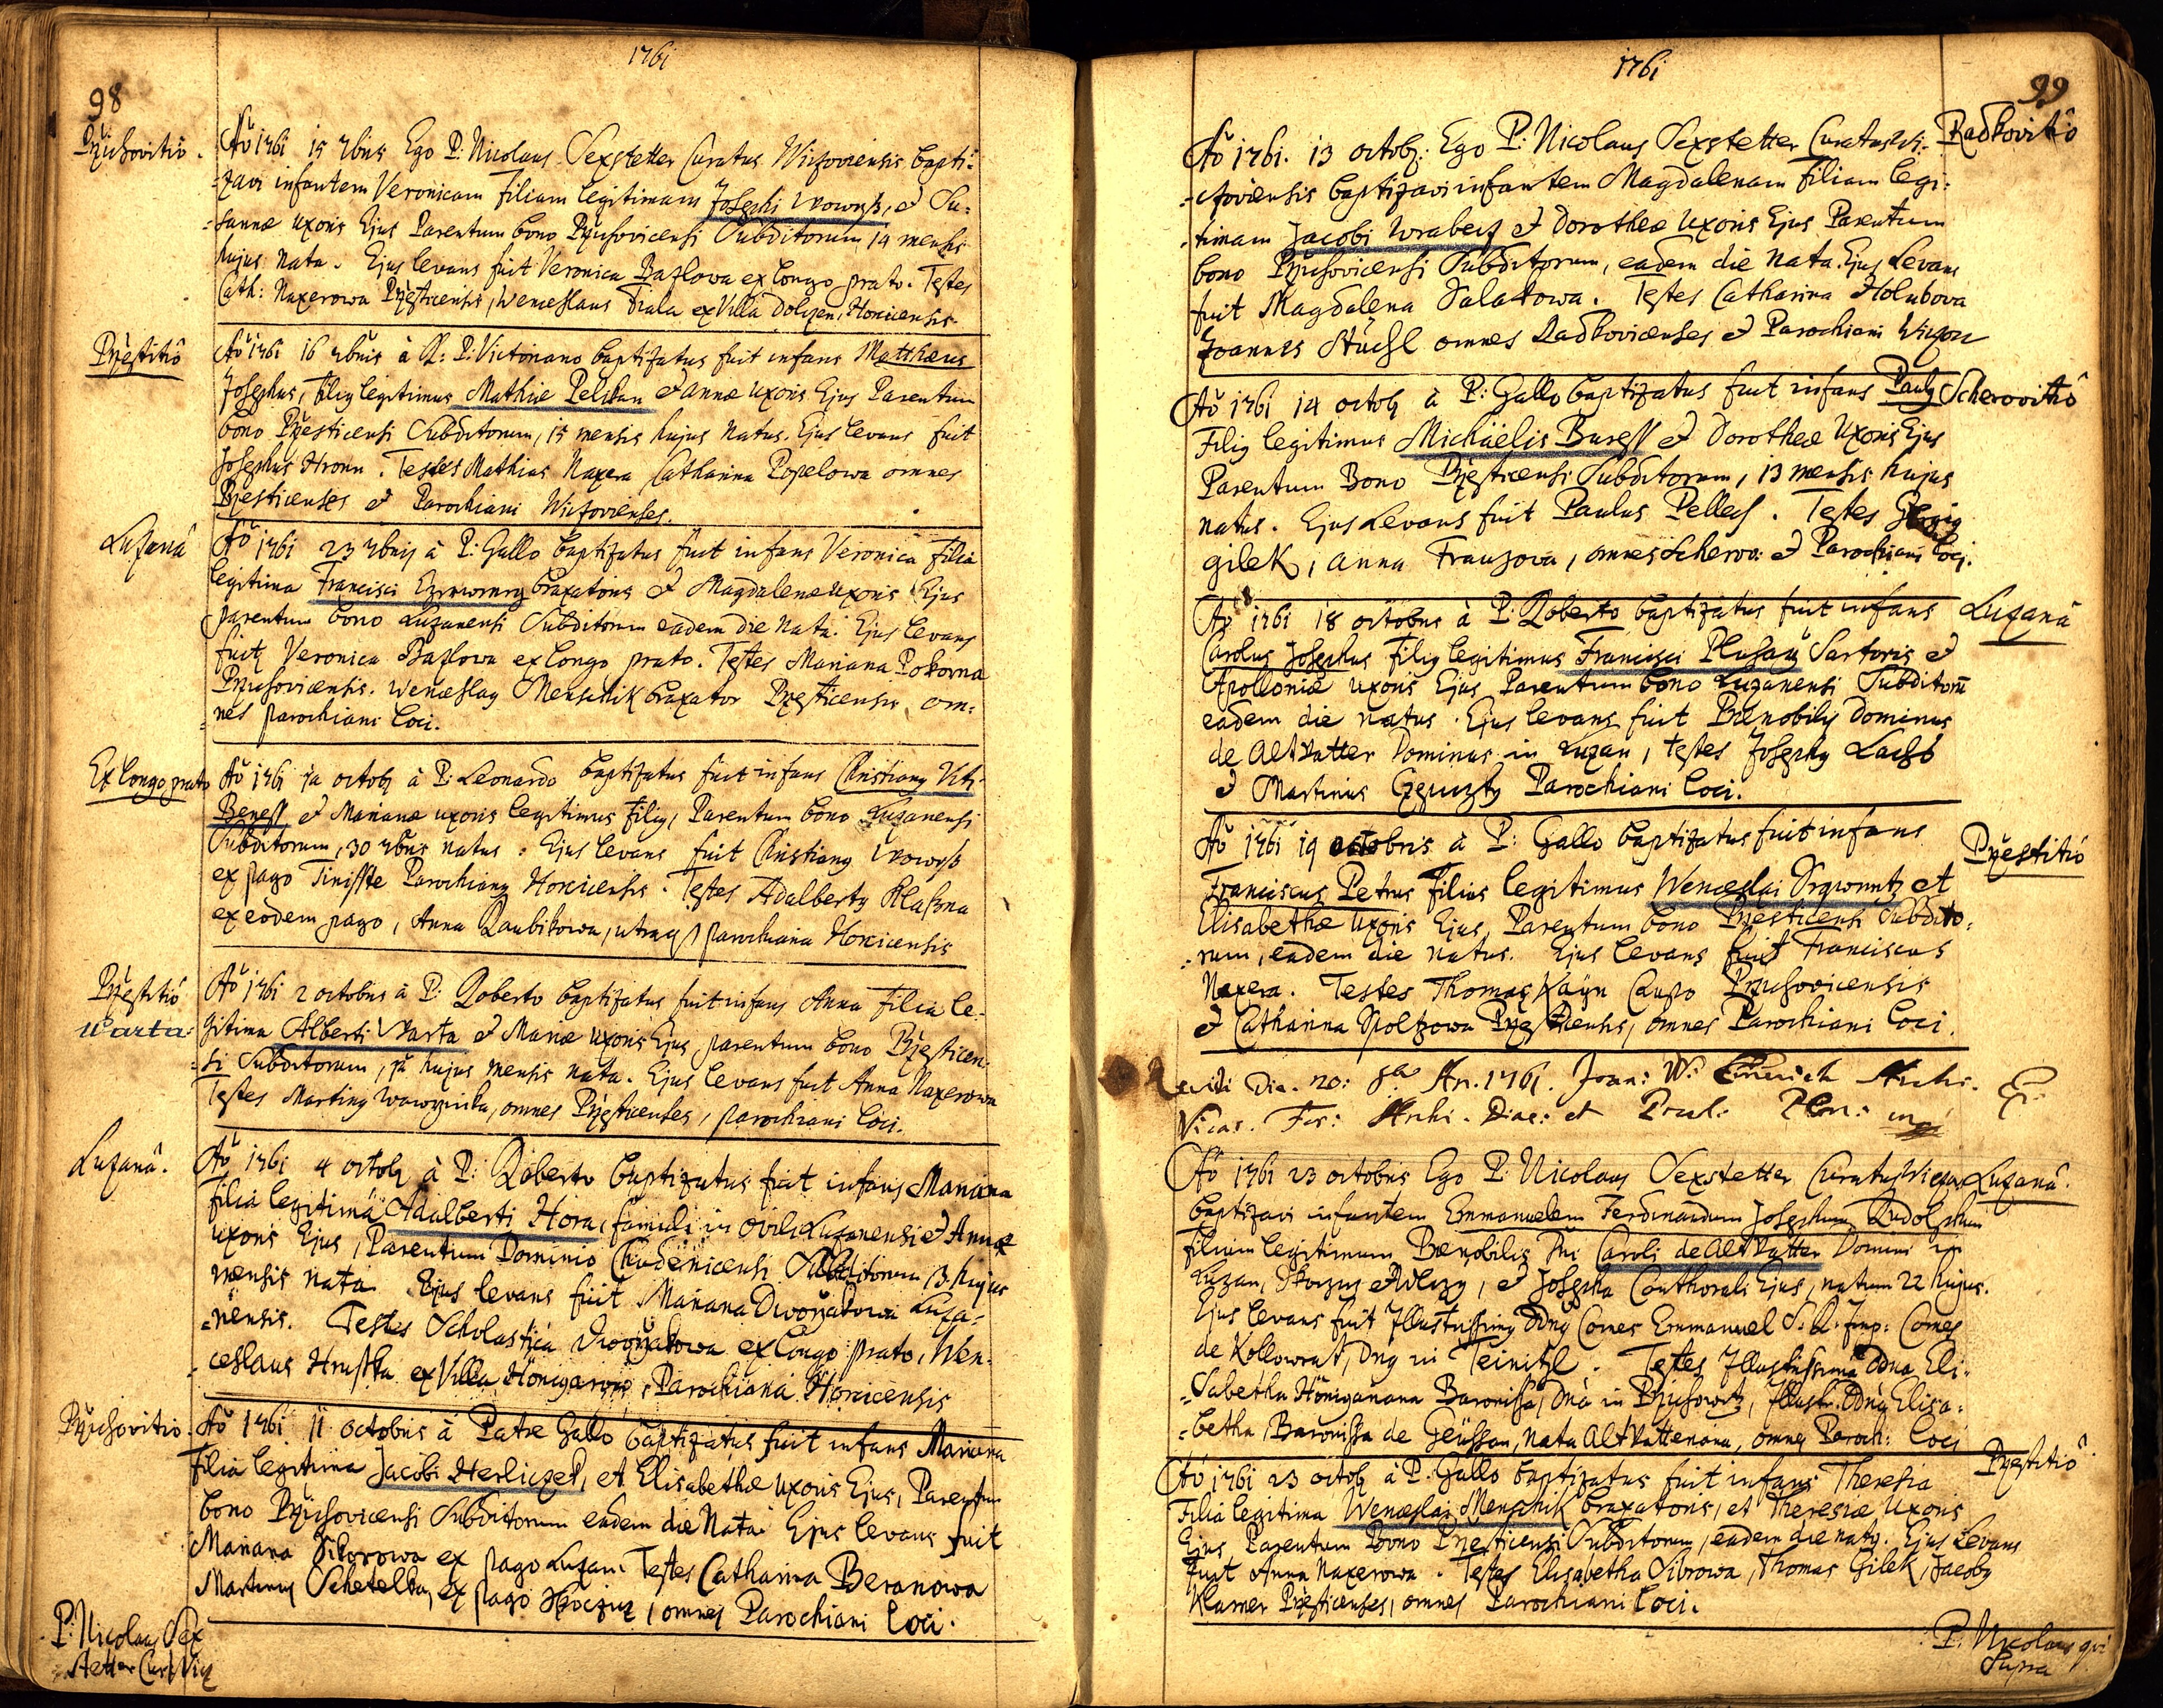 1761
98
Pržichovitiô.
Aõ 1761 15 7bris Ego P: Nicolaus Sexstetter Curatus Wiczoviensis bapti=
=zavi infantem Veronicam Filiam legitimam Josephi Wowrß, et Su=
=sannæ uxoris Ejus Parentum bono Pržichovicensi Subditorum 14 mensis
hujus nata. Ejus levans fuit Veronica Bazlowa ex longo prato. Testes
Cath: Naxerowa Pržesticensis, Wenceslaus Fiala ex Villa Dolzen, Horcicensis.
Pržestitiô
Aõ 1761 16 7bris à P: Victoriano baptizatus fuit infans Matthæus
Josephus, filig legitimus Mathiæ Pelikan et annæ uxoris Ejus Parentum
bono Pržesticensi Subditorum, 15 mensis hujus natus. Ejus levans fuit
Josephus Hronn. Testes Mathias Naxera Catharina Popelowa omnes
Pržesticenses et Parochiani Wiczovienses.
Luzanâ
Aõ 1761 23 7bris à P: Gallo baptizatus fuit infans Veronica filia
legitima Francisci braxatoris et Magdalenæ uxoris Ejus
parentum bono Luzanensi Subditorum eadem die nata. Ejus levans
fuit Veronica Bazlowa ex longo prato. Testes Mariana Pokorna
Pržichovicensis. Wenceslaus Menschik braxator Pržesticensis, om=
=nes parochiani loci.
Ex longo prato
Aõ 1761 1a octob à P: Leonardo baptizatus fuit infans Christiang Viti
Beness et Marianæ uxoris legitimus filig, Parentum bono Luzanensi
Subditorum, 30 7bris natus: Ejus levans fuit Christiang Wowrß
ex pago Tinisste Parochiang Horcicensis. Testes Adalbertg Klasna
ex eodem pago, Anna Raubikowa, utraq parochiana Horcicensis
Pržestitiô
Warta:
Aõ 1761 2 octobris à P: Roberto baptizatus fuit infans Anna Filia le=
gitima Alberti Warta et Mariæ uxoris Ejus parentum bono Pržesticen=
=si Subditorum, 1a hujus mensis nata. Ejus levans fuit Anna Naxerowa
Testes Marting Wawrzicka, omnes Pržesticenses, parochiani loci.
Luzanâ.
Aõ 1761 4 octob à P: Roberto baptizatus fuit infans Mariana
filia legitima Adalberti Hora, famuli in ovili Luzanensi et Annæ
uxoris Ejus, Parentum Dominio Chudenicensi Subditorum, 3 hujus
mensis nata. Ejus levans fuit Mariana Dworzakowa Luza=
=nensis. Testes Scholastica Dworzakowa ex longo prato, Wen=
=ceslaus Hruska ex Villa Parochiana Horcicensis
Pržichovitio.
Aõ 1761 11 octobris à Patre Gallo baptizatus fuit infans Mariana
Filia legitima Jacobi Herliczek, et Elisabethæ uxoris Ejus, Parentum
bono Pržichovicensi Subditorum eadem die Nata. Ejus levans fuit
Mariana Sikorowa ex pago Luzan. Testes Catharina Beranowa
Marting Schetelka, ex pago Skoczicz, omnes Parochiani loci.
P: Nicolaus Sex
stetter Cur: Wicz
1761
99
Radkovitiô
Aõ 1761. 13 octob: Ego P: Nicolaus Sexstetter Curatus Wi=
=czoviensis baptizavi infantem Magdalenam Filiam legi=
=timam Jacobi Wrabecz et Dorotheæ Uxoris Ejus Parentum
bono Pržichovicensi Subditorum, eadem die nata. Ejus Levans
fuit Magdalena Salakowa. Testes Catharina Holubova
Joannes Stuchl omnes Radkovicenses et Parochiani Wiczov
Scherovitiô
Aõ 1761 14 octob à P: Gallo baptizatus fuit infans Paulg
Filig legitimus Michäelis Buress et Dorotheæ Uxoris Ejus
Parentum Bono Pržesticensi Subditorum, 13 mensis hujus
natus. Ejus Levans fuit Paulus Pellech. Testes Georgig
gilek, anna Frauzova, omnes Scherov: et Parochiani loci.
Luzanâ
Aõ 1761 18 octobris à P: Roberto baptizatus fuit infans
Carolus Josephus Filig legitimus Francisci Sartoris et
Apolloniæ uxoris Ejus Parentum bono Luzanensi Subditorũ
eadem die natus. Ejus levans fuit Prænobilis Dominus
de Altvatter Dominus in Luzan, testes Josephg
et Martinus Parochiani loci.
Pržestitiô
Aõ 1761 19 octobris à P: Gallo baptizatus fuit infans
Franciscus Petrus filius legitimus Wenceslai et
Elisabethæ Uxoris Ejus, Parentum bono Pržesticensi Subdito=
=rum, eadem die natus. Ejus levans fuit Franciscus
Naxera. Testes Thomas Kayn Pržichovicensis
et Catharina Spoltzowa Pržesticensis, omnes Parochiani loci.
Revidi Die. 20: 8br An. 1761. Joan: W: Archi.
Vicar. For: Archi. Diac: et
Luzanâ.
Aõ 1761 23 octobris Ego P: Nicolaus Sexstetter Curatus Wiczov
baptizavi infantem Emmanuelem Ferdinandum Josephum Rudolphum
Filium legitimum Prænobilis Dni Caroli de Altvatter Domini in
Luzan, Skoczicz et Wlczy, et Josepha Conthorali Ejus, natum 22 hujus.
Ejus levans fuit Illustrissimg Dng Comes Emmanuel S: R: Imp: Comes
de Kollowrat, Dng in Teinitzl. Testes Illustrissima Ddna Eli=
=sabetha Hönigariana Baronissa, Dna in Pržichowitz, Illustr: Ddna Elisa=
=betha Baronissa de Geüssau, nata Altvatteriana, omnes Paroch: loci
Pržestitiô
Aõ 1761 23 octob à P. Gallo baptizatus fuit infans Theresia
Filia legitima Wenceslai Menschik braxatoris, et Theresiæ Uxoris
Ejus Parentum Bono Pržesticensi Subditorum, eadem die natg. Ejus Levans
fuit Anna Naxerowa. Testes Elisabetha Sibrowa, Thomas Gilek, Jacobg
Klamer Pržesticenses, omnes Parochiani loci.
P: Nicolaus qvi
Supra